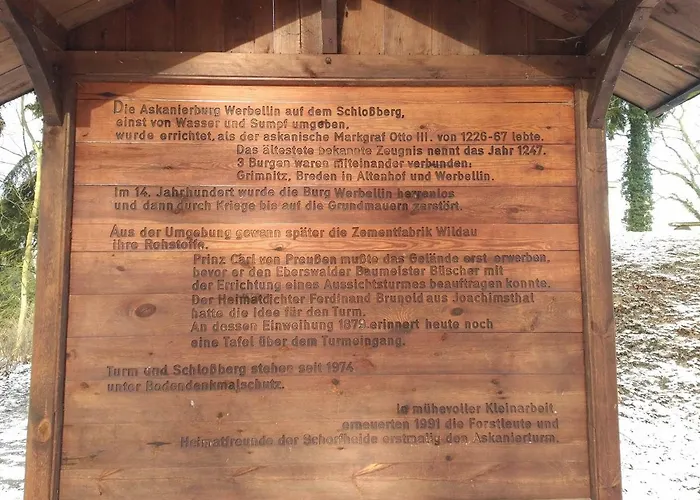 Die Askanierburg Werbellin auf dem Schloßberg,
einst von Wasser und Sumpf umgeben,
wurde errichtet, als der askanische Markgraf Otto III. von 1226-67 lebte.
Das älteste bekannte Zeugnis nennt das Jahr 1247.
3 Burgen waren miteinander verbunden:
Grimnitz, Breden in Altenhof und Werbellin.
Im 14. Jahrhundert wurde die Burg Werbellin herrenlos
und dann durch Kriege bis auf die Grundmauern zerstört.
Aus der Umgebung gewann später die Zementfabrik Wildau
ihre Rohstoffe.
Prinz Carl von Preußen mußte das Gelände erst erwerben,
bevor er den Eberswalder Baumeister Büscher mit
der Errichtung eines Aussichtsturmes beauftragen konnte.
Der Heimatdichter Ferdinand Brunold aus Joachimsthal
hatte die Idee für den Turm.
An dessen Einweihung 1879 erinnert heute noch
eine Tafel über dem Turmeingang.
Turm und Schloßberg stehen seit 1974
unter Bodendenkmalschutz.
In mühevoller Kleinarbeit
erneuerten 1991 die Forstleute und
Heimatfreunde der Schorfheide erstmalig den Askanierturm.